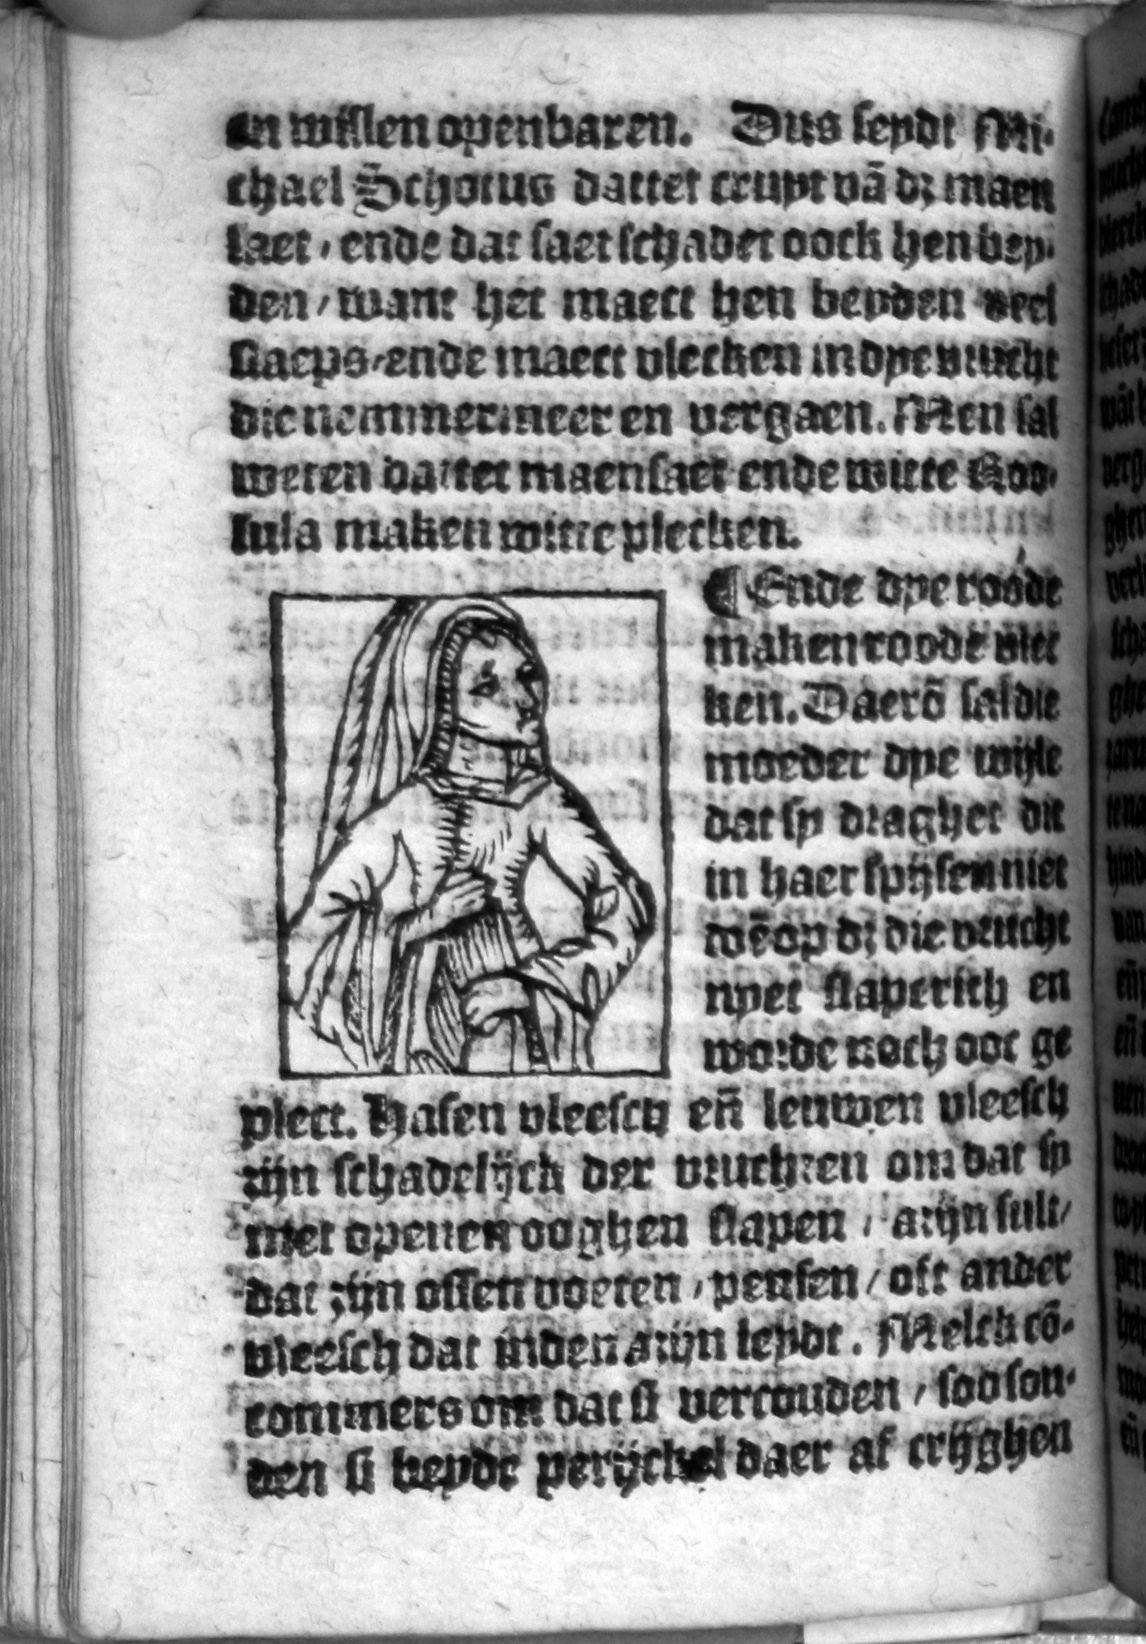 en willen openbaren. Dus seydt Mi-
chael Schotus dattet cruyt vā dz maen
saet / ende dat saet schadet oock hen bey-
den / want het maect hen beyden veel
slaeps / ende maect vlecken in dye vrucht
die nemmermeer en vergaen. Men sal
weten dattet maensaet ende witte Roo-
sula maken witte plecken.
¶ Ende dye roode
maken roode vlet
ken. Daerō sal die
moeder dye wijle
dat sy draghet dit
in haer spijsen niet
op dz die vrucht
nyet slaperich en
worde noch ooc ge
plect. Hasen vleesch eñ leuwen vleesch
zijn schadelijck der vruchten om dat sy
met openen ooghen slapen / azijn sult /
dat zijn ossen voeten / pensen / oft ander
vleesch dat inden azijn leydt. Melck cō-
commers om dat si vercouden / soo sou-
den si beyde perijckel daer af crijghen